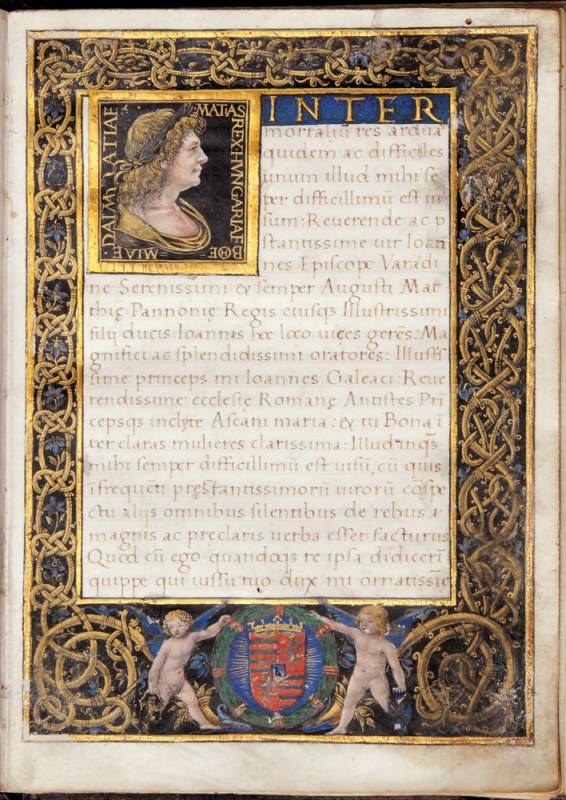 MATIAS REX HVNGARIAE BOE
MIAE DALMATIAE
INTER
mortaliū res arduā
quidem ac difficiles
unum illud mihi se
per difficillimū est ui
sum: Reuerende ac p
stantissime uir Ioan
nes Episcope Varadi
ne Serenissimi & semper Augusti Mat
thię Pannonię Regis eiusq; Illustrissimi
filij ducis Ioannis hoc loco uices gerēs: Ma
gnifici ac splendidissimi oratores: Illustris
sime princeps mi Ioannes Galeaci: Reue
rendissime ecclesię Romanę Antistes Prī
cepsq; inclyte Ascani maria: & tu Bona ī
ter claras mulieres clarissima: Illud inq̄ȝ
mihi semper difficillimū est uisū, cū quis
ī frequēti pręstantissimorū uirorū cōspe
ctu alijs omnibus silentibus de rebus
magnis ac preclaris uerba esset facturus
Quod cū ego quandoq; re ipsa didicerī
quippe qui iussu tuo dux mi ornatissīe